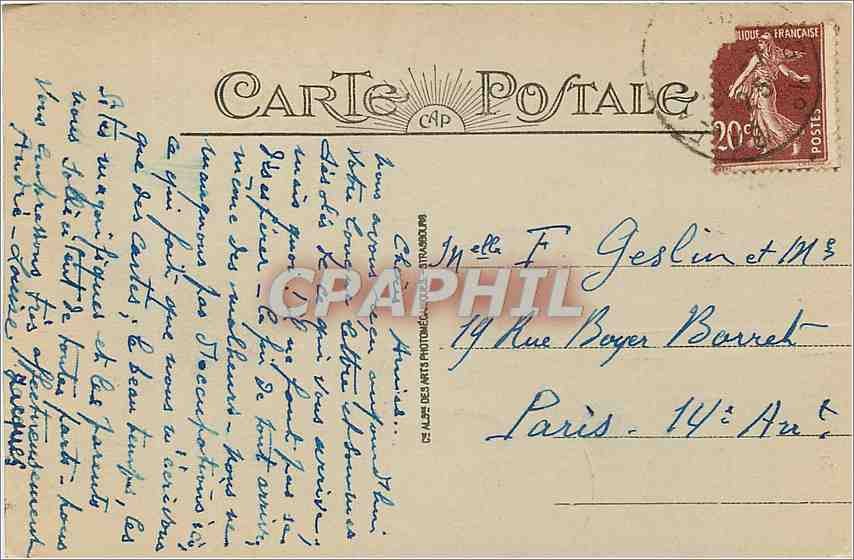 CARTE POSTALE
CAP
RÉPUBLIQUE FRANÇAISE
20c
POSTES
Chères Amies..
nous avons reçu aujourd'hui
votre longue lettre et sommes
désolés de ce qui vous arrive!
mais quoi! il ne faut pas se
désespérer - le fin de tout arrive,
même des malheurs - nous ne
manquons pas d'occupations ici
ce qui fait que nous n'écrivons
que des cartes; le beau temps, les
sites magnifiques et les parents
nous sollicitent de toutes parts - nous
vous embrassons très affectueusement
André - Louise Jacques
Cie ALSne DES ARTS PHOTOMÉCANIQUES - STRASBOURG
Melle F. Geslin et Me
19 Rue Boyer Barret
Paris. 14e Art
CPAPHIL